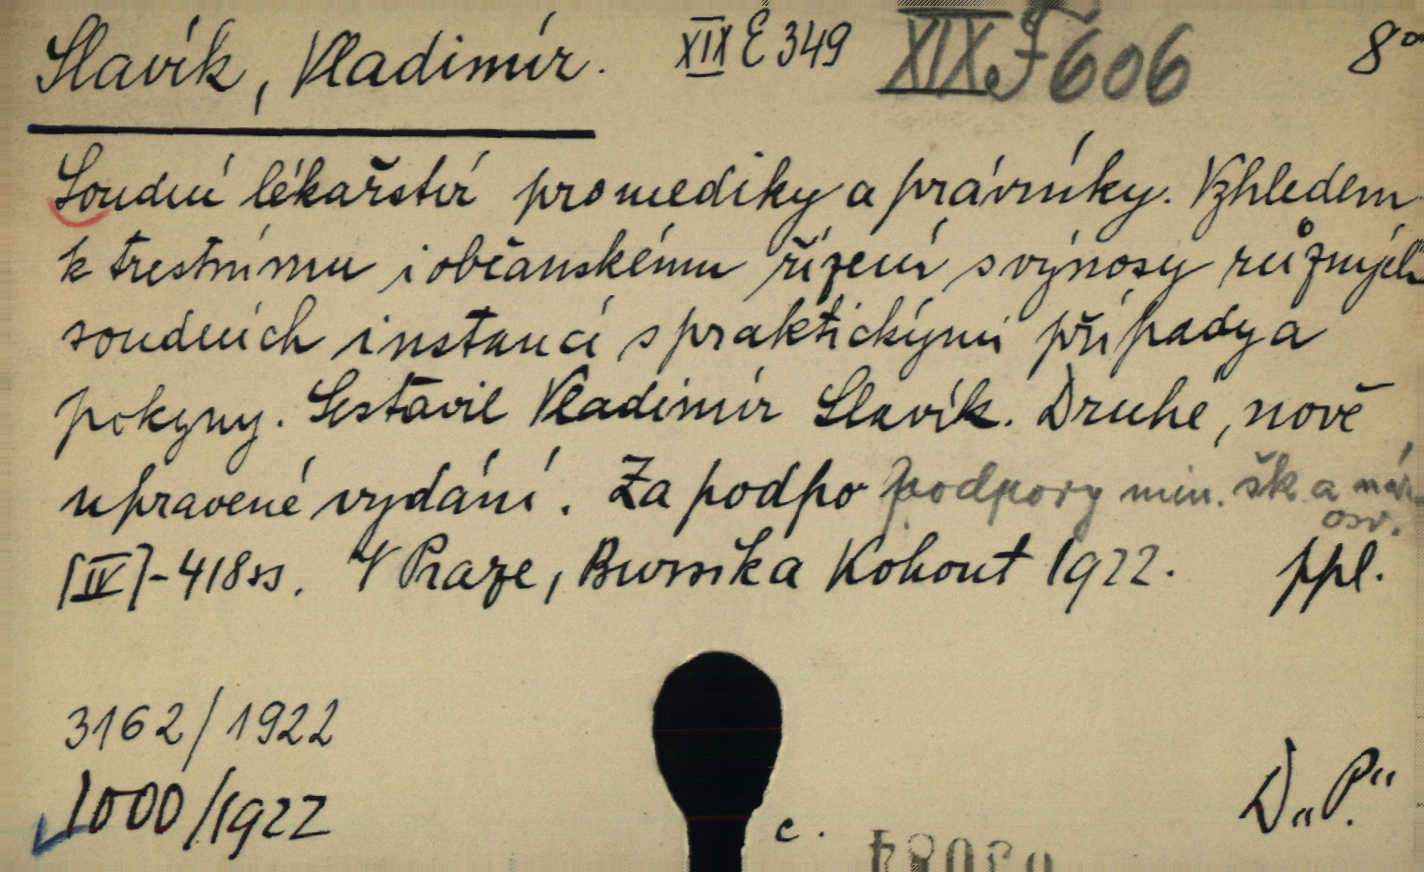 Slavík, Vladimír. XIX E 349 XIX F 606 8°
Soudní lékařství pro mediky a právníky. Vzhledem
k trestnímu i občanskému řízení s výnosy různých
soudních instancí s praktickými případy a
pokyny. Sestavil Vladimír Slavík. Druhé, nově
upravené vydání. Za podpo podpory min. šk. a nár.
osv.
[IV]-418 ss. V Praze, Bursíka Kohout 1922. ppl.
3162/1922
1000/1922
D „P."
c.